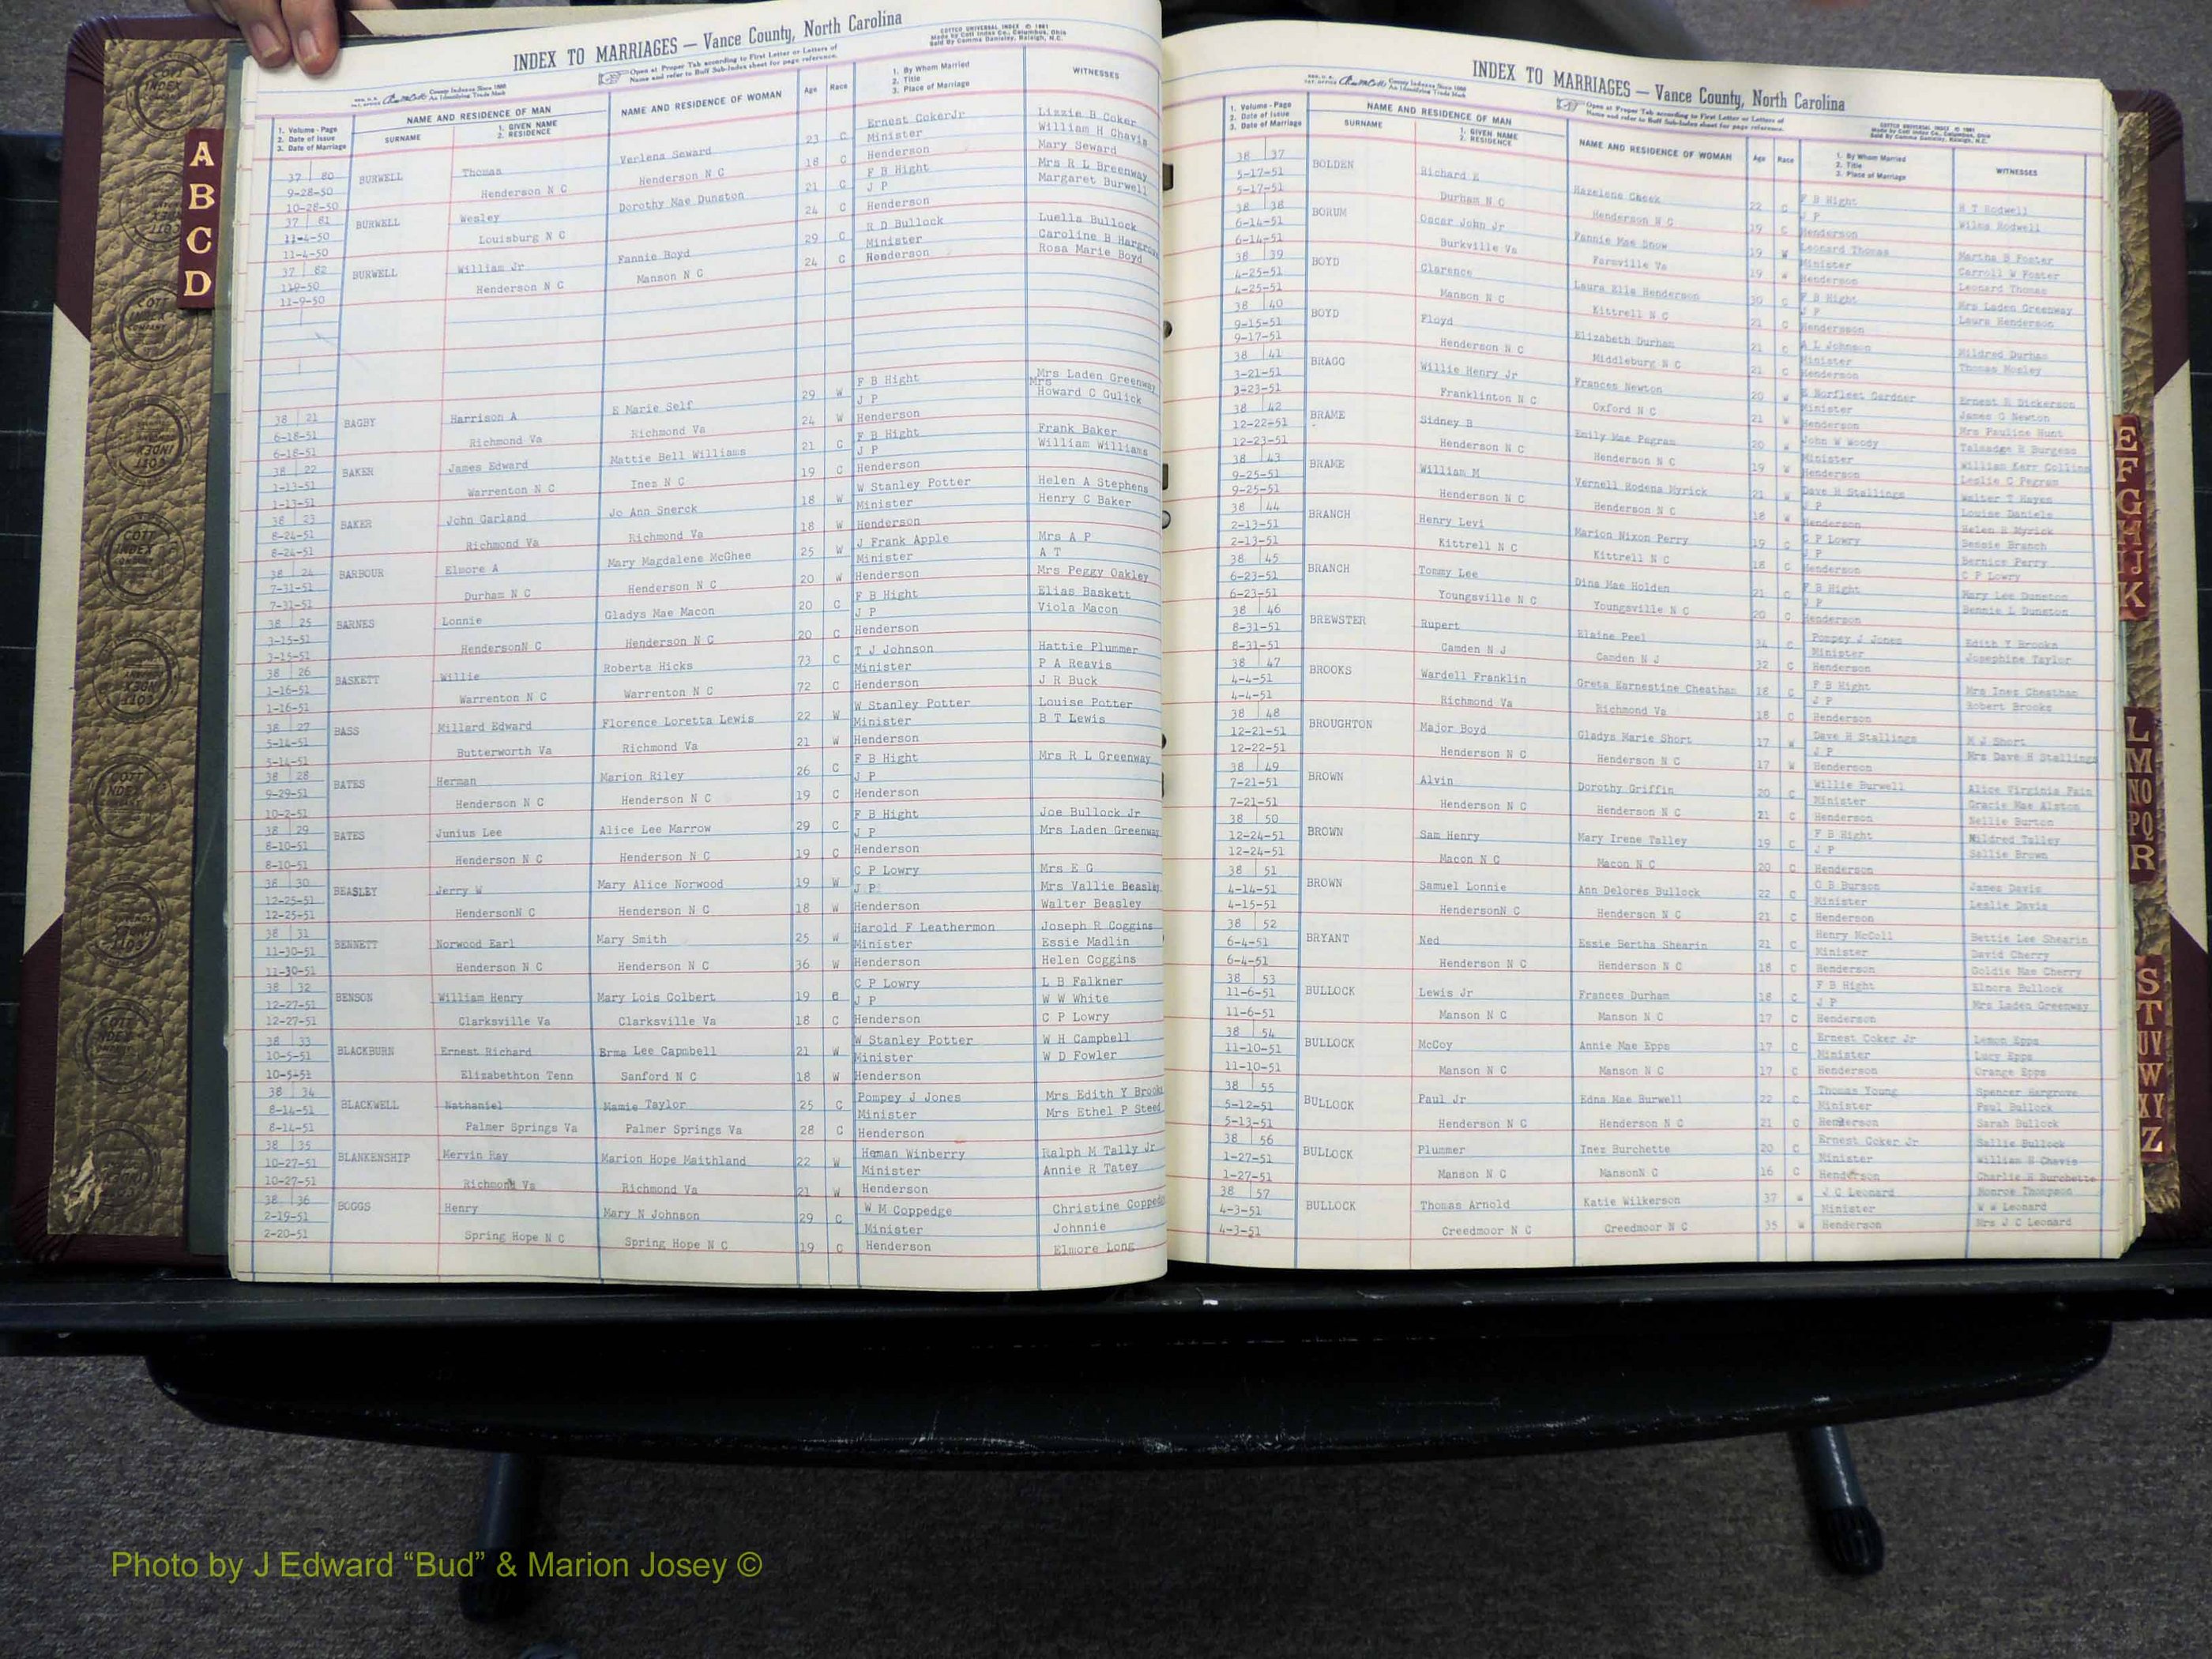 INDEX TO MARRIAGES — Vance County, North Carolina
Open at Proper Tab according to First Letter or Letters of
Name and refer to Buff Sub-Index sheet for page reference.
COTTCO UNIVERSAL INDEX © 1981
Made by Cott Index Co., Columbus, Ohio
County Indexes Since 1888
An Identifying Trade Mark
1. Volume - Page
2. Date of Issue
3. Date of Marriage
NAME AND RESIDENCE OF MAN
SURNAME
1. GIVEN NAME
2. RESIDENCE
NAME AND RESIDENCE OF WOMAN
Age Race
1. By Whom Married
2. Title
3. Place of Marriage
WITNESSES
37 80 BURWELL Thomas Verlena Seward 23 C Ernest CokerJr Lizzie B Coker
9-28-50 Henderson N C Henderson N C 18 C Minister William H Chavis
10-28-50 Henderson Mary Seward
37 81 BURWELL Wesley Dorothy Mae Dunston 21 C F B Hight Mrs R L Breenway
11-4-50 Louisburg N C 24 C J P Margaret Burwell
11-4-50 Henderson
37 82 BURWELL William Jr Fannie Boyd 29 C R D Bullock Luella Bullock
Henderson N C Manson N C 24 C Minister Caroline B Hargrove
11-9-50 Henderson Rosa Marie Boyd
38 21 BAGBY Harrison A E Marie Self 29 W F B Hight Mrs Laden Greenway
6-18-51 Richmond Va Richmond Va 24 W J P Mrs Howard C Gulick
6-18-51 Henderson
38 22 BAKER James Edward Mattie Bell Williams 21 C F B Hight Frank Baker
1-13-51 Warrenton N C Inez N C 19 C J P William Williams
1-13-51 Henderson
38 23 BAKER John Garland Jo Ann Snerck 18 W W Stanley Potter Helen A Stephens
8-24-51 Richmond Va Richmond Va 18 W Minister Henry C Baker
8-24-51 Henderson
38 24 BARBOUR Elmore A Mary Magdalene McGhee 25 W J Frank Apple Mrs A P
7-31-51 Durham N C Henderson N C 20 W Minister A T
7-31-51 Henderson Mrs Peggy Oakley
38 25 BARNES Lonnie Gladys Mae Macon 20 C F B Hight Elias Baskett
3-15-51 HendersonN C Henderson N C 20 C J P Viola Macon
3-15-51 Henderson
38 26 BASKETT Willie Roberta Hicks 73 C T J Johnson Hattie Plummer
1-16-51 Warrenton N C Warrenton N C 72 C Minister P A Reavis
1-16-51 Henderson J R Buck
38 27 BASS Millard Edward Florence Loretta Lewis 22 W W Stanley Potter Louise Potter
5-14-51 Butterworth Va Richmond Va 21 W Minister B T Lewis
5-14-51 Henderson
38 28 BATES Herman Marion Riley 26 C F B Hight Mrs R L Greenway
9-29-51 Henderson N C Henderson N C 19 C J P
10-2-51 Henderson
38 29 BATES Junius Lee Alice Lee Marrow 29 C F B Hight Joe Bullock Jr
8-10-51 Henderson N C Henderson N C 19 C J P Mrs Laden Greenway
8-10-51 Henderson
38 30 BEASLEY Jerry W Mary Alice Norwood 19 W C P Lowry Mrs E G
12-25-51 HendersonN C Henderson N C 18 W J P Mrs Vallie Beasley
12-25-51 Henderson Walter Beasley
38 31 BENNETT Norwood Earl Mary Smith 25 W Harold F Leathermon Joseph R Coggins
11-30-51 Henderson N C Henderson N C 36 W Minister Essie Madlin
11-30-51 Henderson Helen Coggins
38 32 BENSON William Henry Mary Lois Colbert 19 C P Lowry L B Falkner
12-27-51 Clarksville Va Clarksville Va 18 C J P W W White
12-27-51 Henderson C P Lowry
38 33 BLACKBURN Ernest Richard Erma Lee Capmbell 21 W W Stanley Potter W H Campbell
10-5-51 Elizabethton Tenn Sanford N C 18 W Minister W D Fowler
10-5-51 Henderson
38 34 BLACKWELL Nathaniel Mamie Taylor 25 C Pompey J Jones Mrs Edith Y Brooks
8-14-51 Palmer Springs Va Palmer Springs Va 28 C Minister Mrs Ethel P Steed
8-14-51 Henderson
38 35 BLANKENSHIP Mervin Ray Marion Hope Maithland 22 W Heman Winberry Ralph M Tally Jr
10-27-51 Richmond Va Richmond Va 21 W Minister Annie R Tatey
10-27-51 Henderson
38 36 BOGGS Henry Mary N Johnson 29 C W M Coppedge Christine Coppedge
2-19-51 Spring Hope N C Spring Hope N C 19 C Minister Johnnie
2-20-51 Henderson Elmore Long
INDEX TO MARRIAGES — Vance County, North Carolina
Open at Proper Tab according to First Letter or Letters of
Name and refer to Buff Sub-Index sheet for page reference.
1. Volume - Page
2. Date of Issue
3. Date of Marriage
NAME AND RESIDENCE OF MAN
SURNAME
1. GIVEN NAME
2. RESIDENCE
NAME AND RESIDENCE OF WOMAN
Age Race
1. By Whom Married
2. Title
3. Place of Marriage
WITNESSES
38 37 BOLDEN Richard E Hazelene Cheek 22 C F B Hight H T Rodwell
5-17-51 Durham N C Henderson N C 19 C J P Wilma Rodwell
5-17-51 Henderson
38 38 BORUM Oscar John Jr Fannie Mae Snow 19 W Leonard Thomas Martha B Foster
6-14-51 Burkville Va Farmville Va 19 W Minister Carroll W Foster
6-14-51 Henderson Leonard Thomas
38 39 BOYD Clarence Laura Ella Henderson 30 C F B Hight Mrs Laden Greenway
4-25-51 Manson N C Kittrell N C 21 C J P Laura Henderson
4-25-51 Henderson
38 40 BOYD Floyd Elizabeth Durham 21 C A L Johnson Mildred Durham
9-15-51 Henderson N C Middleburg N C 21 C Minister Thomas Mosley
9-17-51 Henderson
38 41 BRAGG Willie Henry Jr Frances Newton 20 W E Norfleet Gardner Ernest R Dickerson
3-21-51 Franklinton N C Oxford N C 21 W Minister James G Newton
3-23-51 Henderson Mrs Pauline Hunt
38 42 BRAME Sidney B Emily Mae Pegram 20 W John W Woody Talmadge H Burgess
12-22-51 Henderson N C Henderson N C 19 W Minister William Kerr Collins
12-23-51 Henderson Leslie C Pegram
38 43 BRAME William M Vernell Rodena Myrick 21 W Dave H Stallings Walter T Hayes
9-25-51 Henderson N C Henderson N C 18 W J P Louise Daniels
9-25-51 Henderson Helen R Myrick
38 44 BRANCH Henry Levi Marion Nixon Perry 19 C C P Lowry Bessie Branch
2-13-51 Kittrell N C Kittrell N C 18 C J P Bernice Perry
2-13-51 Henderson C P Lowry
38 45 BRANCH Tommy Lee Dina Mae Holden 21 C F B Hight Mary Lee Dunston
6-23-51 Youngsville N C Youngsville N C 20 C J P Bennie L Dunston
6-23-51 Henderson
38 46 BREWSTER Rupert Elaine Peel 34 C Pompey J Jones Edith Y Brooks
8-31-51 Camden N J Camden N J 32 C Minister Josephine Taylor
8-31-51 Henderson
38 47 BROOKS Wardell Franklin Greta Earnestine Cheatham 18 C F B Hight Mrs Inez Cheatham
4-4-51 Richmond Va Richmond Va 18 C J P Robert Brooks
4-4-51 Henderson
38 48 BROUGHTON Major Boyd Gladys Marie Short 17 W Dave H Stallings M J Short
12-21-51 Henderson N C Henderson N C 17 W J P Mrs Dave H Stallings
12-22-51 Henderson
38 49 BROWN Alvin Dorothy Griffin 20 C Willie Burwell Alice Virginia Fain
7-21-51 Henderson N C Henderson N C 21 C Minister Gracie Mae Alston
7-21-51 Henderson Nellie Burton
38 50 BROWN Sam Henry Mary Irene Talley 19 C F B Hight Mildred Talley
12-24-51 Macon N C Macon N C 20 C J P Sallie Brown
12-24-51 Henderson
38 51 BROWN Samuel Lonnie Ann Delores Bullock 22 C O B Burson James Davis
4-14-51 HendersonN C Henderson N C 21 C Minister Leslie Davis
4-15-51 Henderson
38 52 BRYANT Ned Essie Bertha Shearin 21 C Henry McColl Bettie Lee Shearin
6-4-51 Henderson N C Henderson N C 18 C Minister David Cherry
6-4-51 Henderson Goldie Mae Cherry
38 53 BULLOCK Lewis Jr Frances Durham 18 C F B Hight Elnora Bullock
11-6-51 Manson N C Manson N C 17 C J P Mrs Laden Greenway
11-6-51 Henderson
38 54 BULLOCK McCoy Annie Mae Epps 17 C Ernest Coker Jr Lemon Epps
11-10-51 Manson N C Manson N C 17 C Minister Lucy Epps
11-10-51 Henderson Orange Epps
38 55 BULLOCK Paul Jr Edna Mae Burwell 22 C Thomas Young Spencer Hargrove
5-12-51 Henderson N C Henderson N C 21 C Minister Paul Bullock
5-13-51 Henderson Sarah Bullock
38 56 BULLOCK Plummer Inez Burchette 20 C Ernest Coker Jr Sallie Bullock
1-27-51 Manson N C MansonN C 16 C Minister William H Chavis
1-27-51 Henderson Charlie H Burchette
38 57 BULLOCK Thomas Arnold Katie Wilkerson 37 W J C Leonard Monroe Thompson
4-3-51 Creedmoor N C Creedmoor N C 35 W Minister W W Leonard
4-3-51 Henderson Mrs J C Leonard
A
B
C
D
E
F
G
H
IJ
K
L
M
NO
PQ
R
S
T
UV
W
XY
Z
Photo by J Edward “Bud” & Marion Josey ©